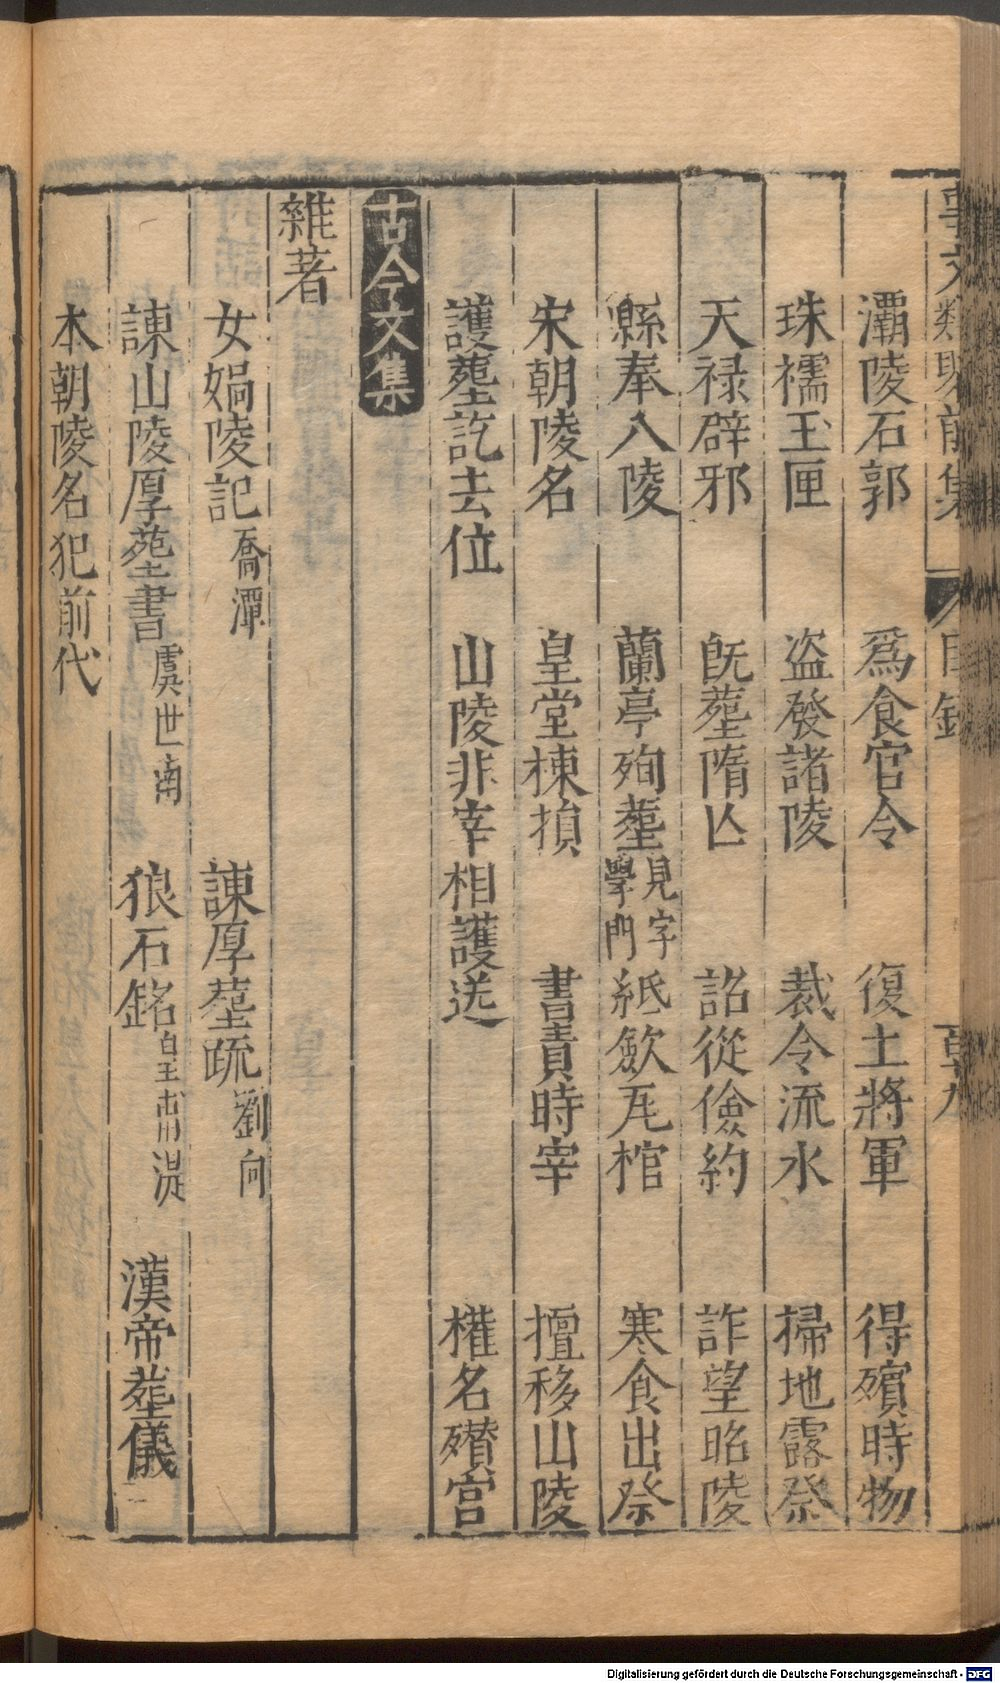 事文類聚前集 目錄 百十九
灞陵石郭 爲食官令 復土將軍 得殯時物
珠襦玉匣 盗發諸陵 裁令流水 掃地露祭
天禄辟邪 旣塟隋亾 詔從儉約 詐望昭陵
縣奉入陵 蘭亭殉塟見字學門 紙斂瓦棺 寒食出祭
宋朝陵名 皇堂棟損 書責時宰 擅移山陵
護塟訖去位 山陵非宰相護送 權名殯宮
古今文集
雜著
女媧陵記喬潭 諫厚塟疏劉向
諫山陵厚塟書虞世南 狼石銘皇甫湜 漢帝塟儀
本朝陵名犯前代
Digitalisierung gefördert durch die Deutsche Forschungsgemeinschaft - DFG